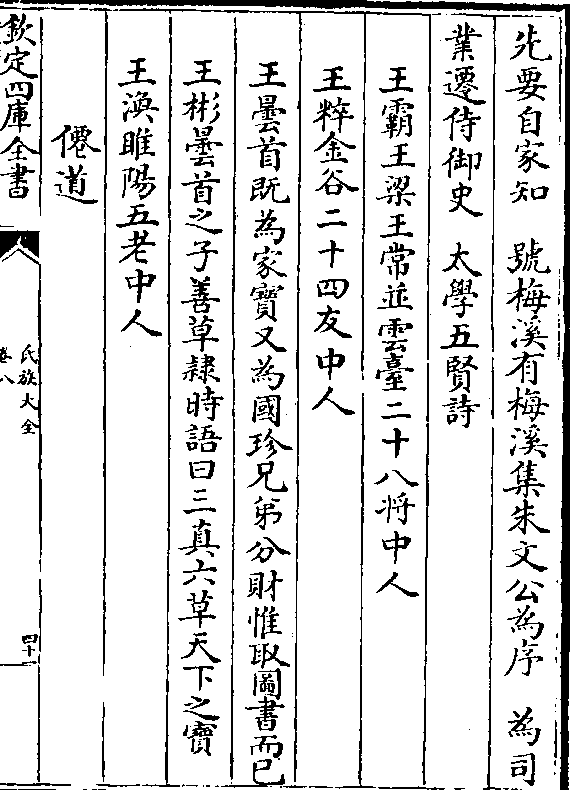 先要自家知　號梅溪有梅溪集朱文公為序　為司
業遷侍御史　太學五賢詩
王霸王梁王常並雲臺二十八將中人
王粹金谷二十四友中人
王曇首既為家寶又為國珍兄弟分財惟取圖書而已
王彬曇首之子善草隸時語曰三真六草天下之寶
王渙睢陽五老中人
僊道
欽定四庫全書
氏族大全
卷八
四十一